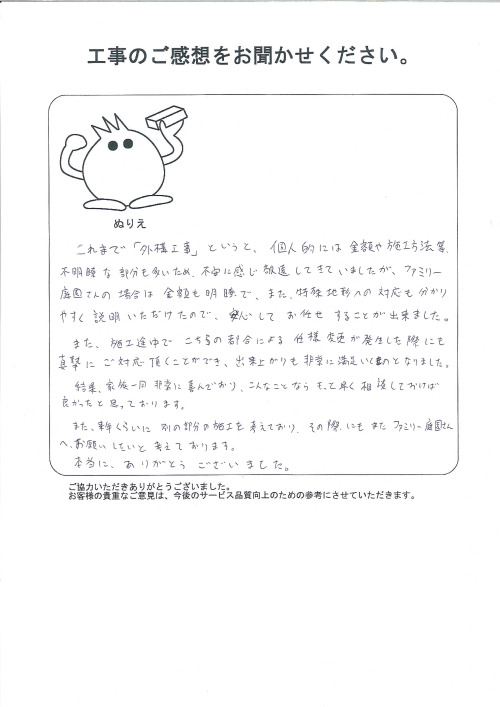 工事のご感想をお聞かせください。
ぬりえ
これまで「外構工事」というと、個人的には金額や施工方法等、
不明瞭な部分も多いため、不安に感じ敬遠してきていましたが、ファミリー
庭園さんの場合は金額も明瞭で、また、特殊地形への対応も分かり
やすく説明いただけたので、安心してお任せすることが出来ました。
また、施工途中でこちらの都合による仕様変更が発生した際にも
真摯にご対応頂くことができ、出来上がりも非常に満足いくものとなりました。
結果、家族一同非常に喜んでおり、こんなことならもっと早く相談しておけば
良かったと思っております。
また、来年くらいに別の部分の施工を考えており、その際にもまたファミリー庭園さん
へお願いしたいと考えております。
本当に、ありがとうございました。
ご協力いただきありがとうございました。
お客様の貴重なご意見は、今後のサービス品質向上のための参考にさせていただきます。